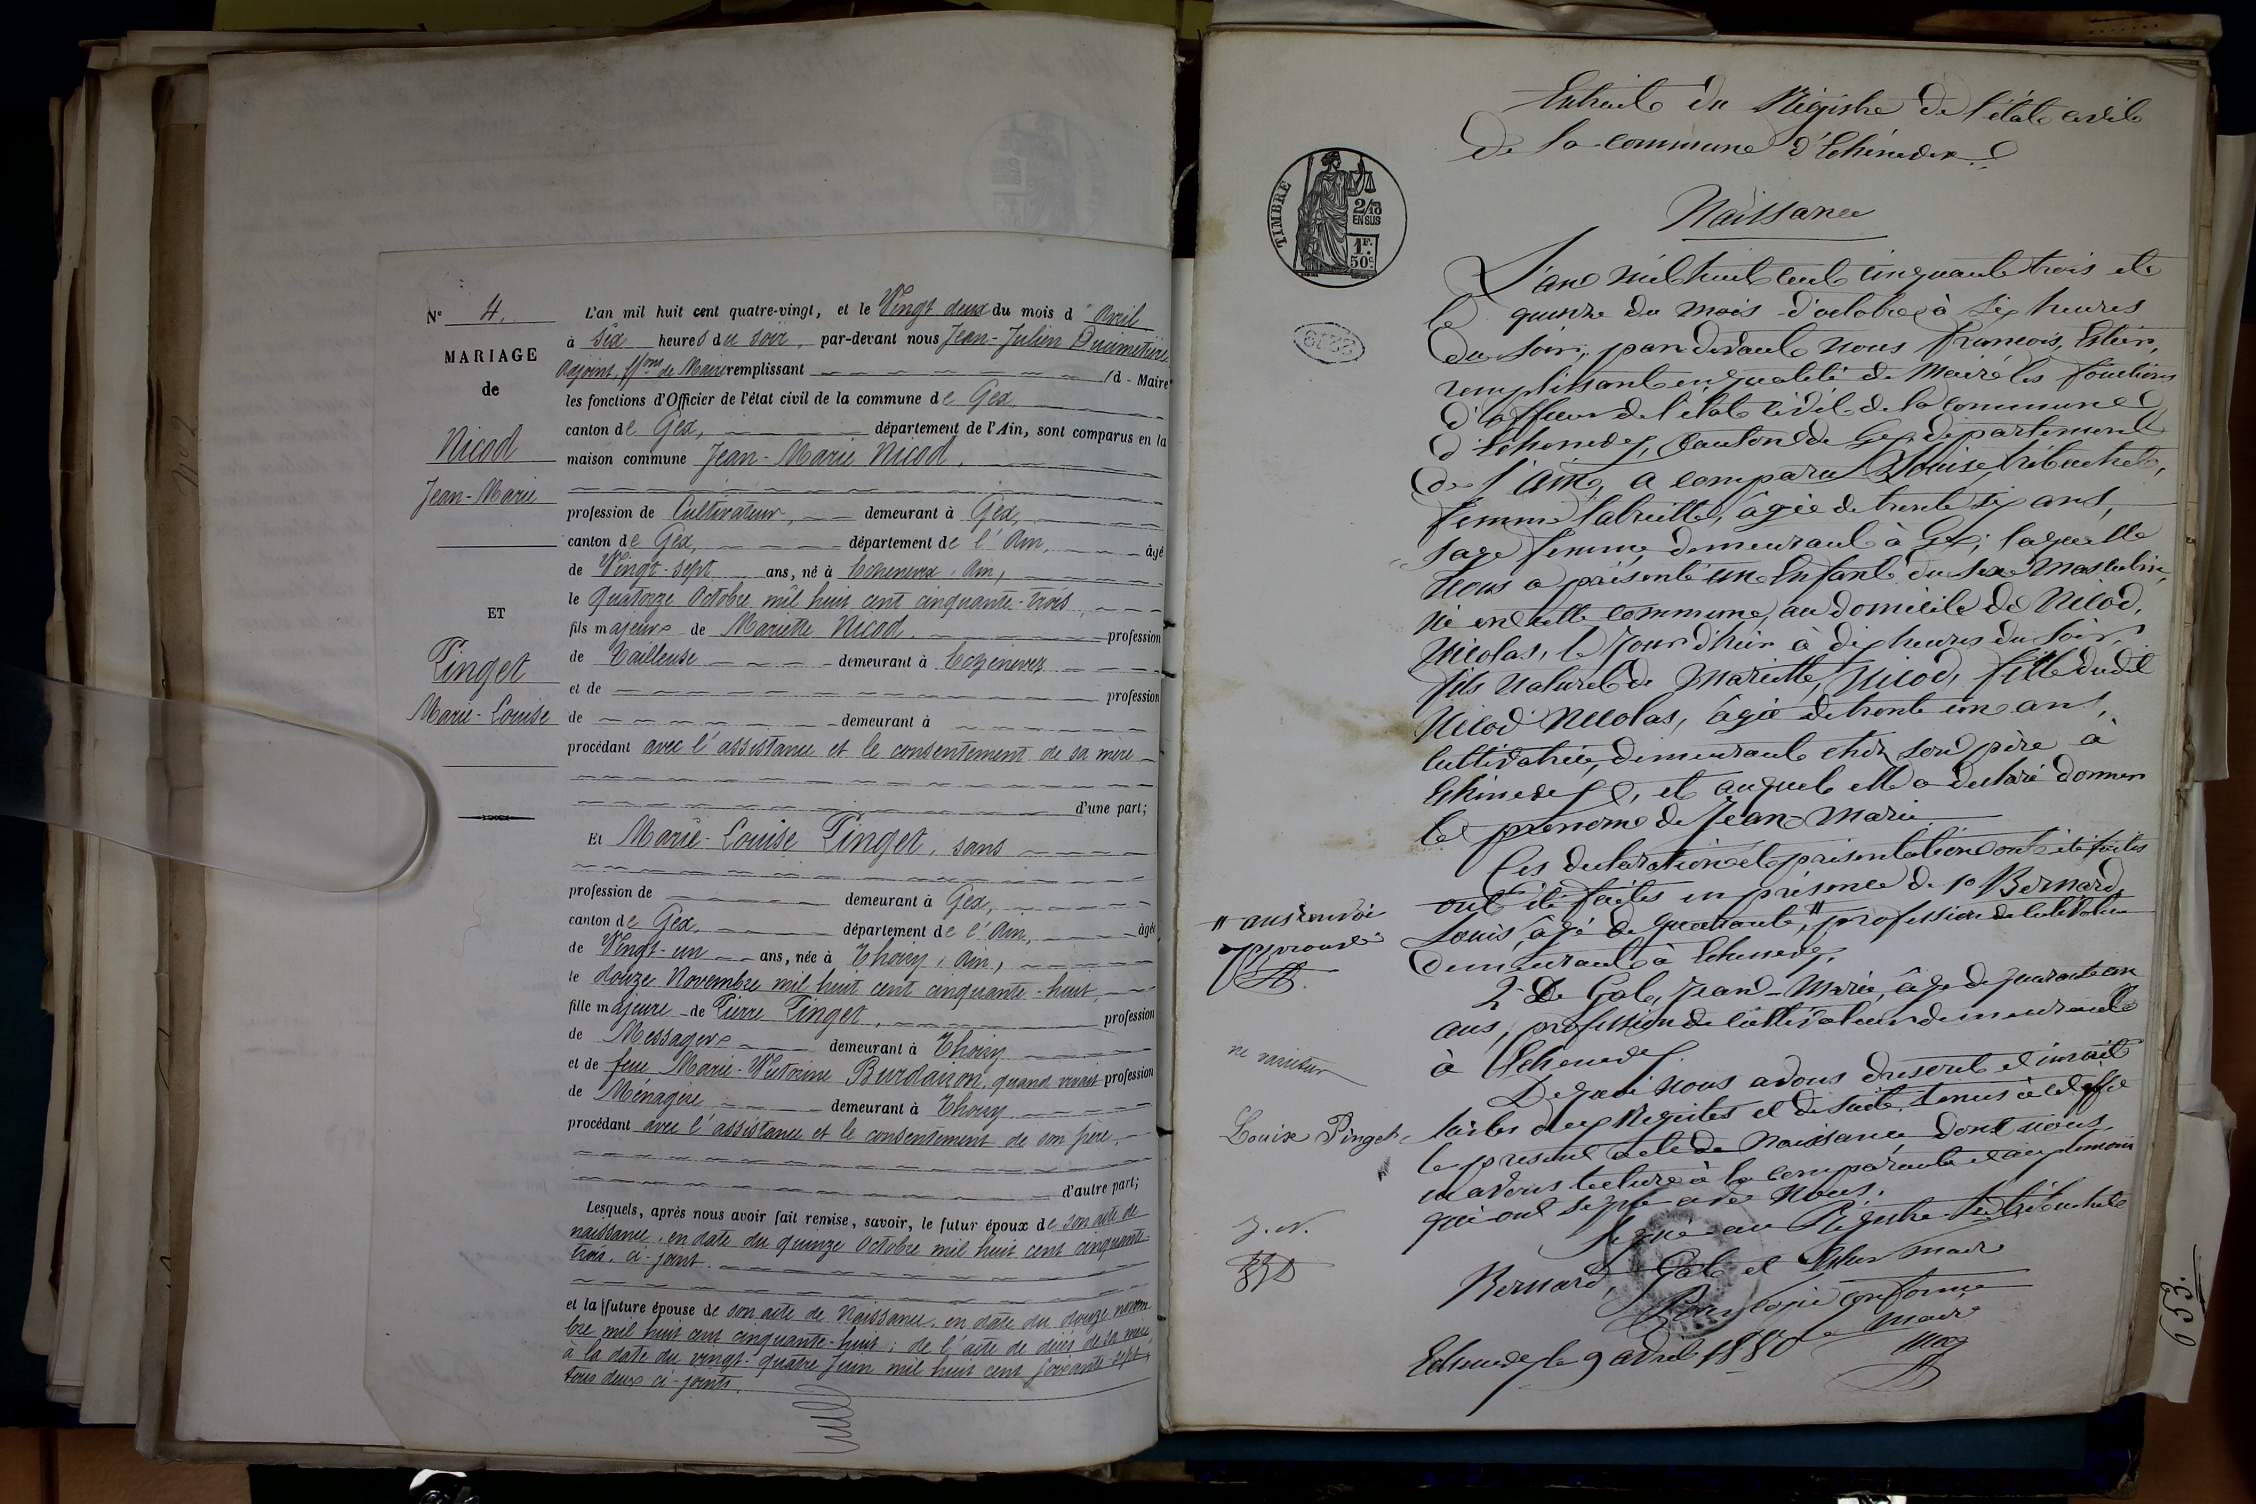 N° 4.
MARIAGE
de
Nicod
Jean-Marie
ET
Pinget
Marie-Louise
L'an mil huit cent quatre-vingt, et le Vingt deux du mois d'Avril
à Six heures du soir, par-devant nous Jean-Julien
Adjoint, ffons de Maire remplissant (d - Maire
les fonctions d'Officier de l'état civil de la commune de Gex
canton de Gex, département de l'Ain, sont comparus en la
maison commune Jean-Marie Nicod,
profession de Cultivateur, demeurant à Gex,
canton de Gex, département de l'Ain, âgé
de Vingt-sept ans, né à Echenevex, Ain,
le quatorze Octobre mil huit cent cinquante-trois,
fils majeur de Mariette Nicod, profession
de Tailleuse demeurant à Echenevex
et de profession
de demeurant à
procédant avec l'assistance et le consentement de sa mère
d'une part;
Et Marie-Louise Pinget, sans
profession de demeurant à Gex,
canton de Gex, département de l'Ain, âgée
de Vingt-un ans, née à Thoiry, Ain,
le douze Novembre mil huit cent cinquante-huit,
fille majeure de Pierre Pinget, profession
de Messager demeurant à Thoiry
et de feue Marie-Victorine Burdairon, quand vivait profession
de Ménagère demeurant à Thoiry
procédant avec l'assistance et le consentement de son père,
d'autre part;
Lesquels, après nous avoir fait remise, savoir, le futur époux de son acte de
naissance, en date du quinze Octobre mil huit cent cinquante-
trois, ci-joint.
et la future épouse de son acte de Naissance, en date du douze novem
bre mil huit cent cinquante-huit; de l'acte de décès de sa mère,
à la date du vingt-quatre Juin mil huit cent soixante-sept,
tous deux ci-joints.
Extrait du Régistre de l'état civil
de la commune d'Echenevex
TIMBRE
2/10
EN SUS
1F.
50c.
Naissance
L'an mil huit cent cinquante trois et
le quinze du mois d'octobre à six heures
du soir, par devant nous François, Estier,
remplissant en qualité de Maire les fonctions
d'officier de l'état civil de la commune
d'Echenevex, Canton de Gex, département
de l'Ain, a comparu Louise Tribuchet,
femme Labreille, âgée de trente six ans,
sage femme demeurant à Gex; laquelle
Nous a présenté un Enfant du sexe Masculin,
né en cette commune, au domicile de Nicod,
Nicolas, le jour d'hier à dix heures du soir,
fils Naturel de Mariette, Nicod, fille dudit
Nicod Nicolas, âgée de trente un ans,
cultivatrice, demeurant chez son père à
Echenevex, et auquel elle a déclaré donner
le prénom de Jean-Marie.
Ces déclaration et présentation ont été faites
ont été faites en présence de 1° Bernard,
Louis, âgé de quarante, " profession de cultivateur
demeurant à Echenevex,
" ans renvoi
approuvé
2° De Gal, Jean-Marie, âgé de quarante cinq
ans, profession de cultivateur demeurant
à Echenevex.
ne varietur
De quoi nous avons dressé et inscrit
sur les deux Régistres et de suite, tenus à cet effet
Louise Pinget
le présent acte de Naissance dont nous
en avons lecture à la comparante et aux témoins
qui ont signé avec Nous.
J. N.
Signé au Régistre Tribuchet
Bernard, Gal et Estier maire
Pour copie conforme
Echenevex le 9 avril 1880 Maire
653.